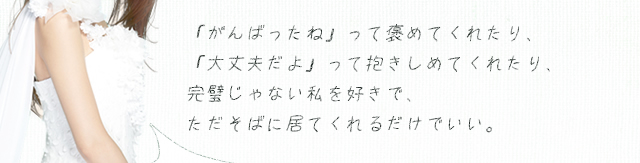 『がんばったね』って褒めてくれたり、
『大丈夫だよ』って抱きしめてくれたり、
完璧じゃない私を好きで、
ただそばに居てくれるだけでいい。